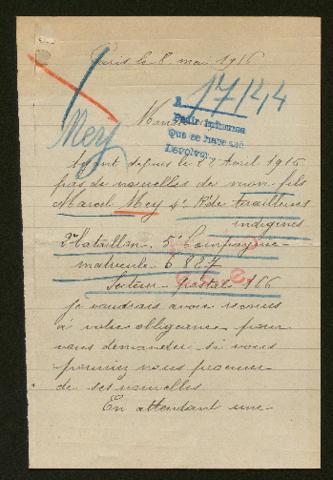 Paris le 8 mai 1916
A 17/44
Mey
Monsieur
Pedir informes
Que se haga
Devolver
Ayant depuis le 27 Avril 1916
pas de nouvelles de mon fils
Marcel Mey 4e Rt de Tirailleurs
indigènes
2e bataillon 5e Compagnie
matricule 6887
Secteur postal 166
je voudrais avoir recours
à votre obligeance pour
vous demander si vous
pourriez nous procurer
de ses nouvelles
En attendant une